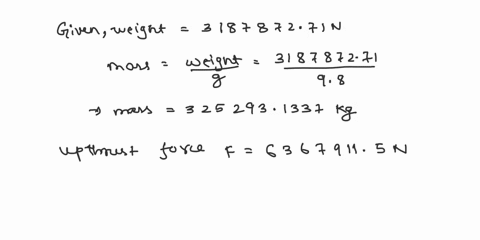 Given, weight = 3187872.71 N
mass = weight/g = 3187872.71/9.8
→ mass = 325293.1337 kg
upthrust force F = 6367911.5 N